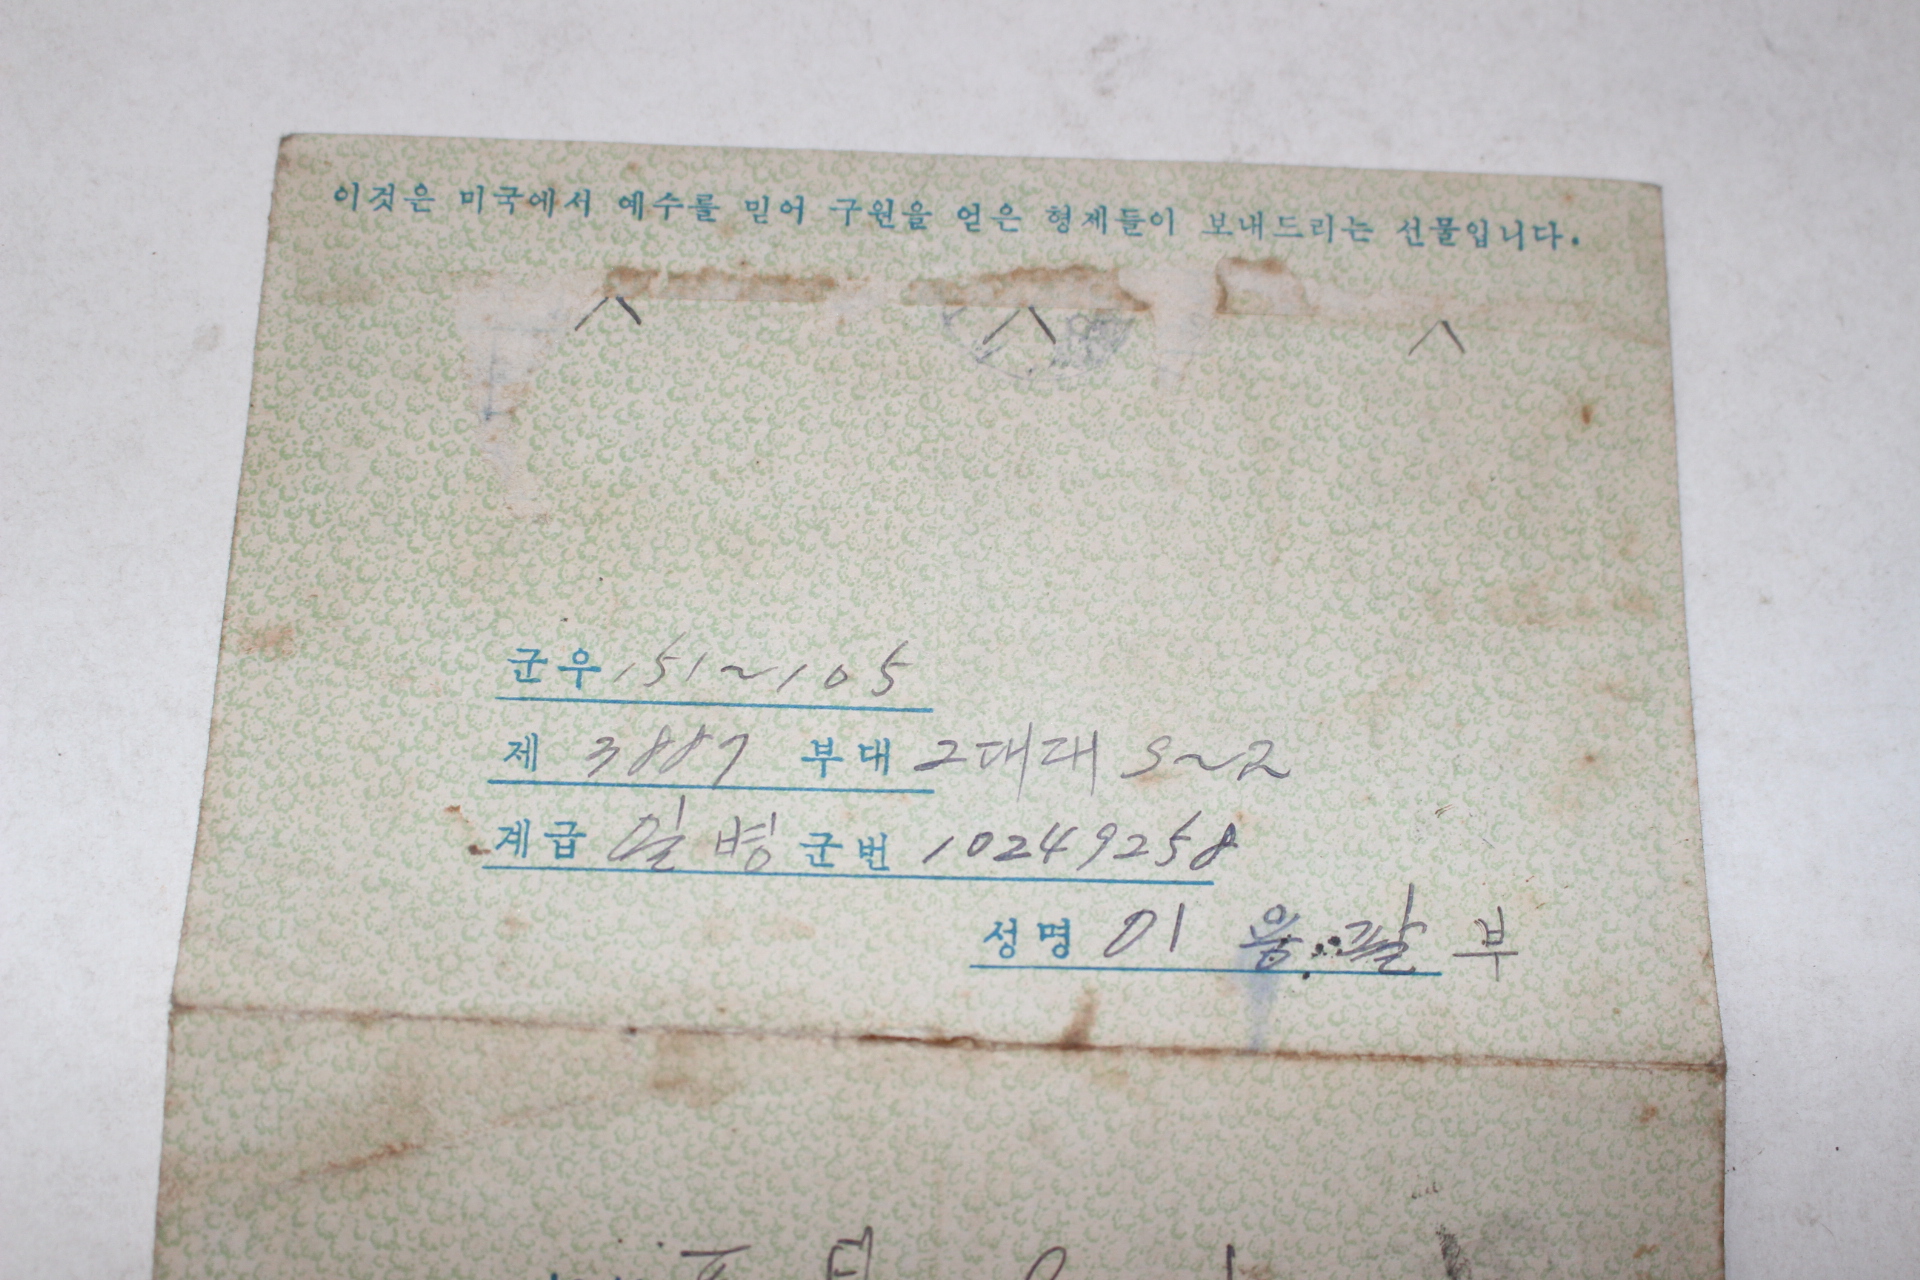 이것은 미국에서 예수를 믿어 구원을 얻은 형제들이 보내드리는 선물입니다.
군우 151~105
제 3887 부대 2대대 S~2
계급 일병 군번 10249258
성명 이 용팔 부